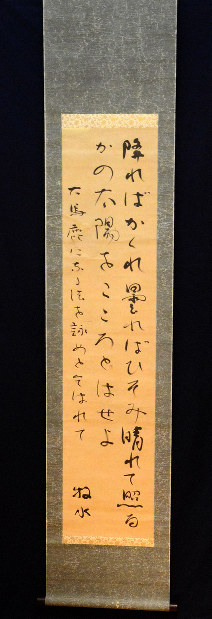 降ればかくれ曇ればひそみ晴れて照る
かの太陽をこころとはせよ
大馬鹿になる法を詠めと乞はれて
牧水